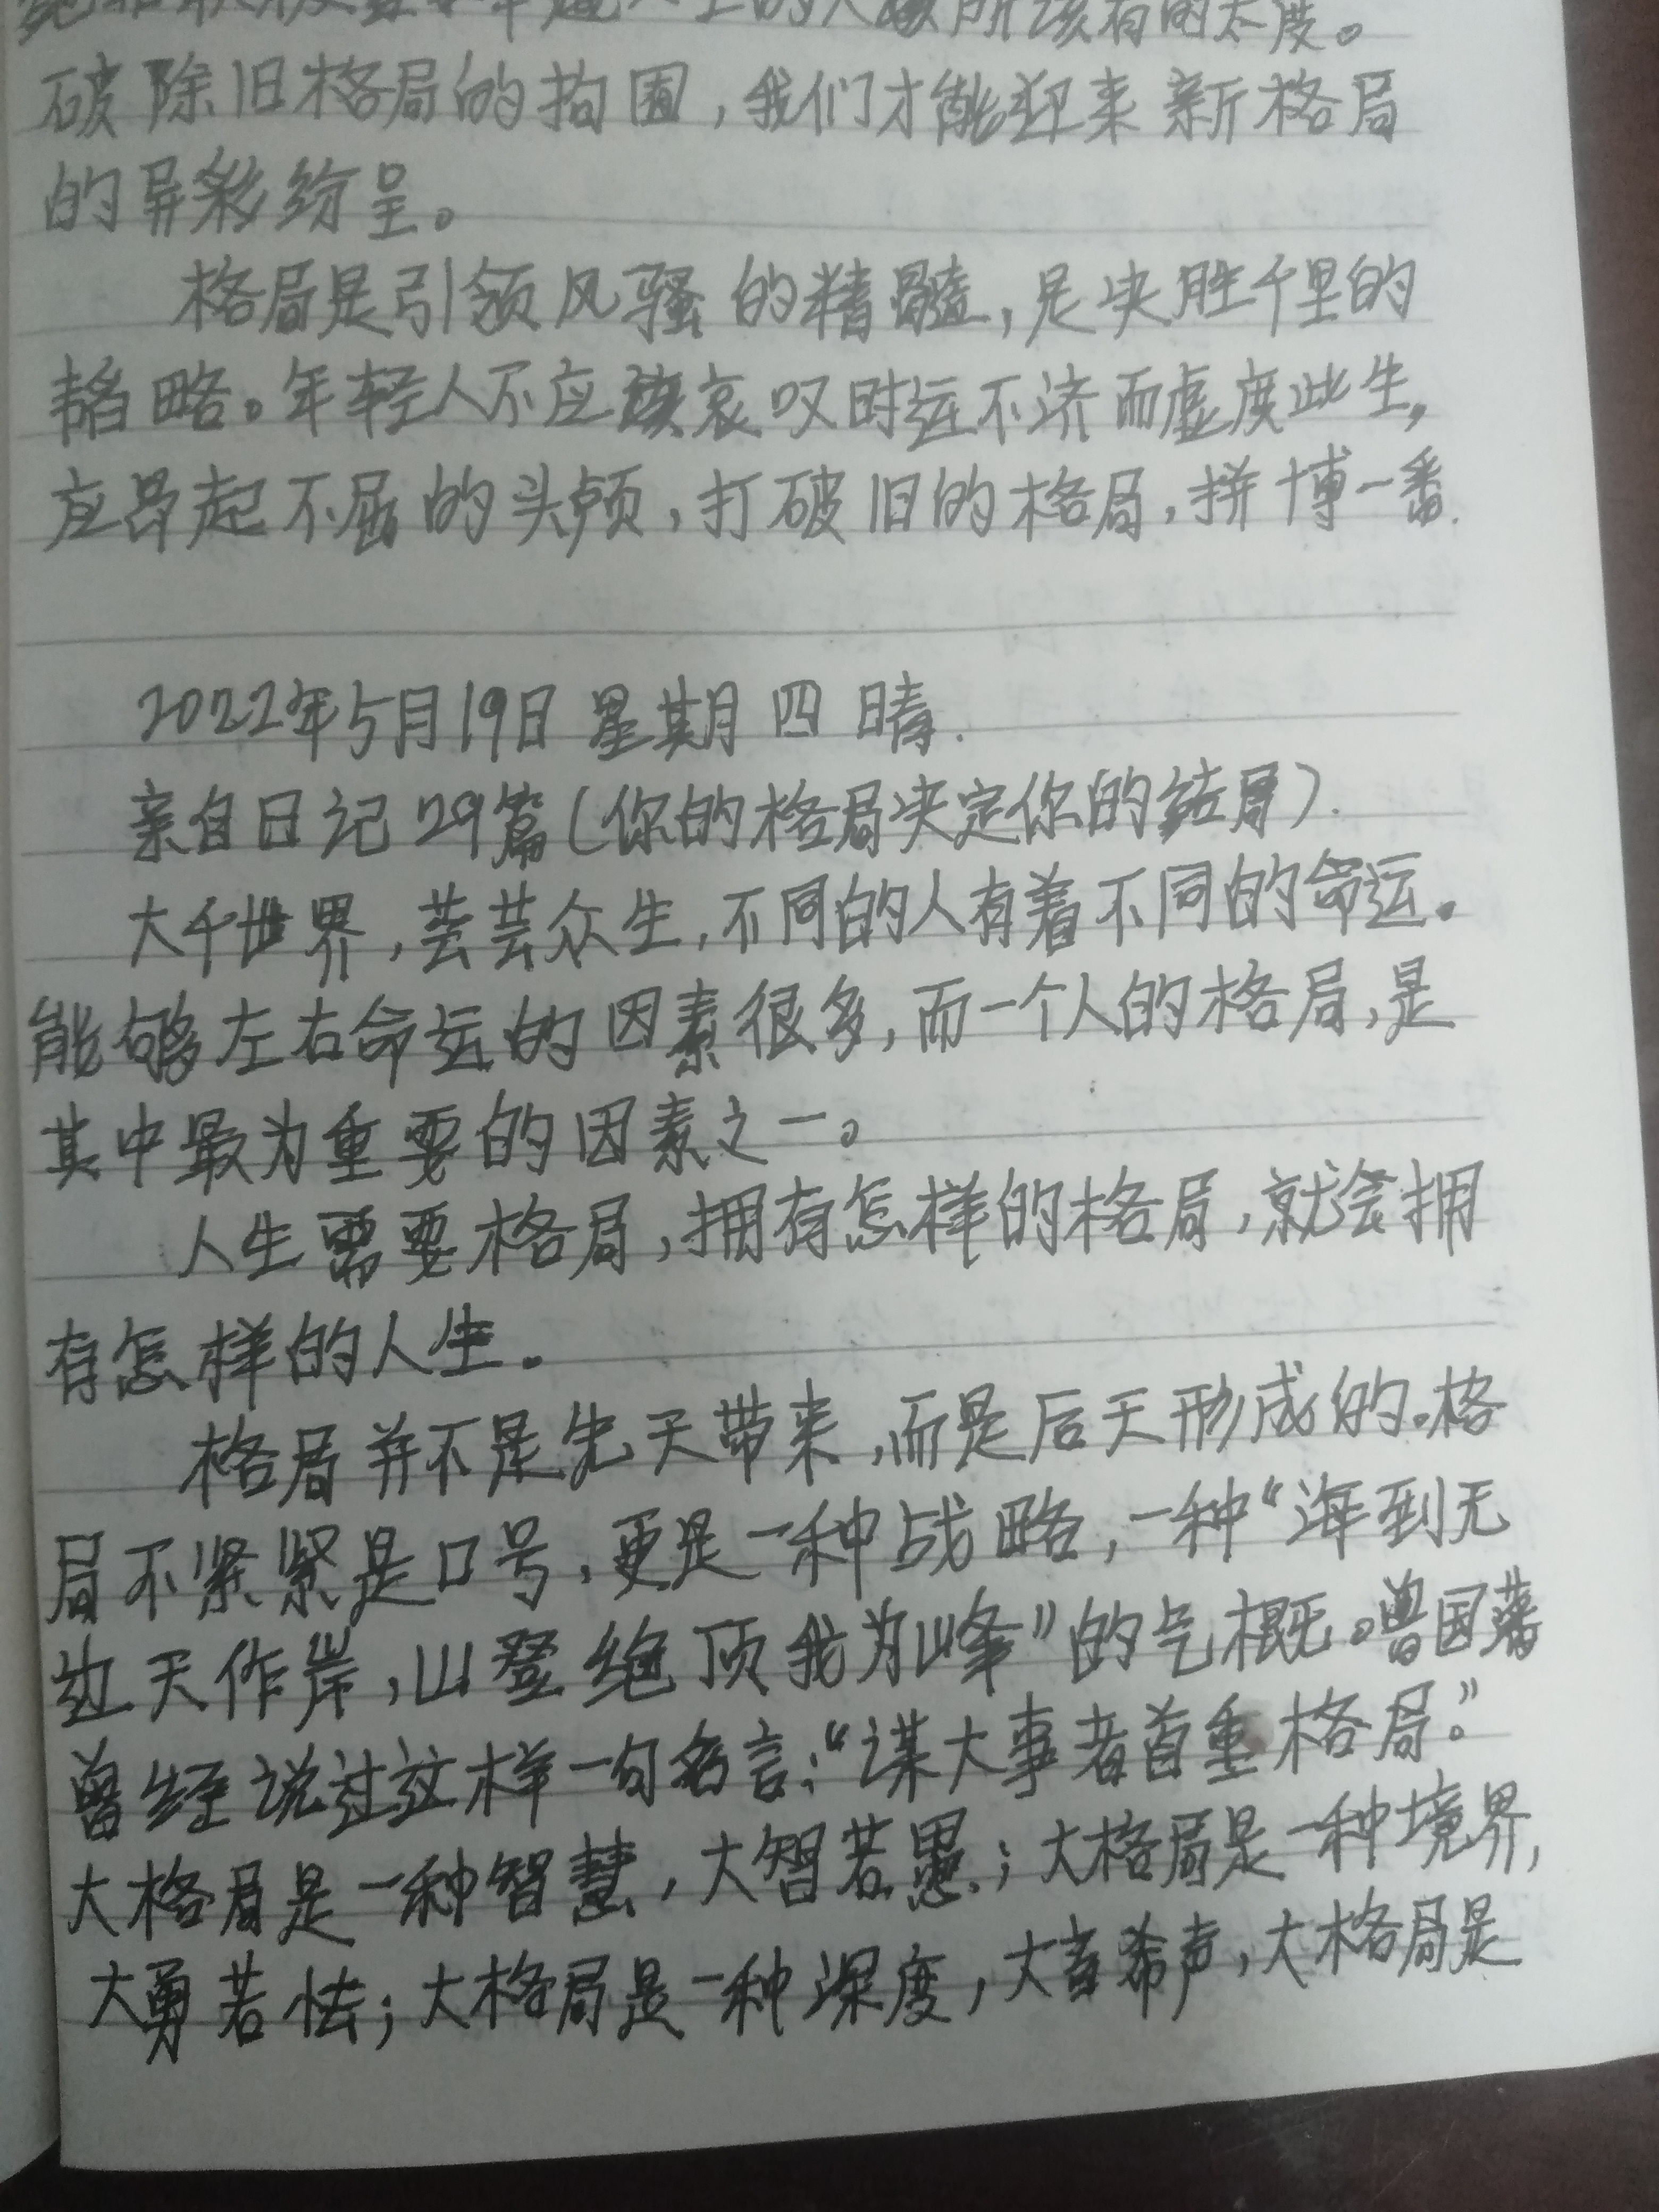 的人 所该有的太度。
破除旧格局的拘囿，我们才能迎来新格局
的异彩纷呈。
格局是引领风骚的精髓，是决胜千里的
韬略。年轻人不应该哀叹时运不济而虚度此生，
应昂起不屈的头颅，打破旧的格局，拼博一番.
2022年5月19日 星期四 晴.
亲自日记29篇(你的格局决定你的结局).
大千世界，芸芸众生，不同的人有着不同的命运。
能够左右命运的因素很多，而一个人的格局，是
其中最为重要的因素之一。
人生需要格局，拥有怎样的格局，就会拥
有怎样的人生。
格局并不是先天带来，而是后天形成的。格
局不紧紧是口号，更是一种战略，一种“海到无
边天作岸，山登绝顶我为峰”的气概。曾国藩
曾经说过这样一句名言：“谋大事者首重格局。”
大格局是一种智慧，大智若愚；大格局是一种境界，
大勇若怯；大格局是一种深度，大音希声，大格局是